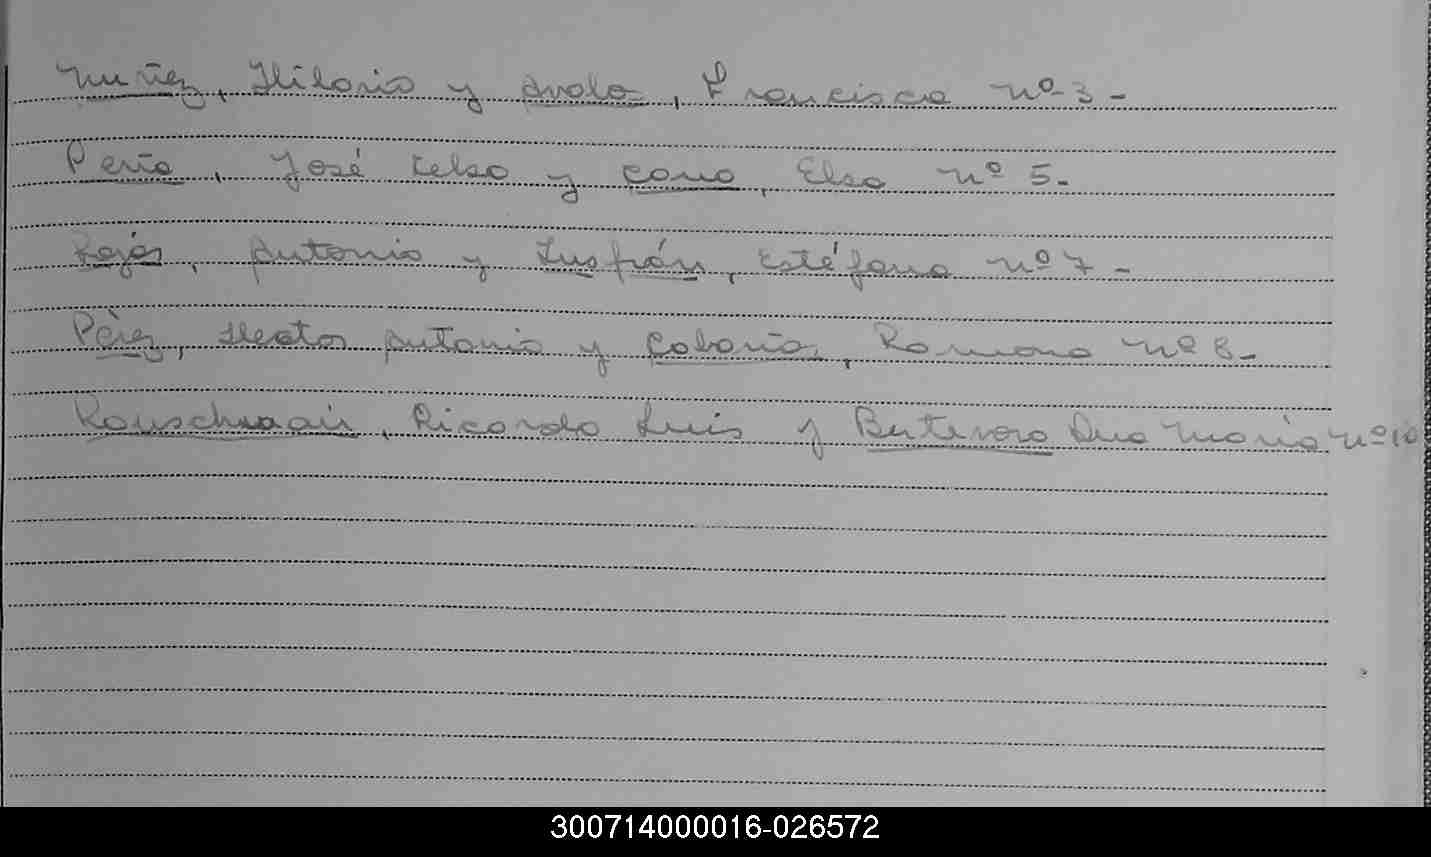 Nuñez, Hilario y Avalo, Francisca Nº 3-
Peña, José Celso y Cano, Elsa Nº 5.-
Rojas, Antonio y Insfrán, Estéfana Nº 7-
Pérez, Hector Antonio y Cabaña, Ramona Nº 8-
Ricardo Luis y Ana Maria Nº 10
300714000016-026572